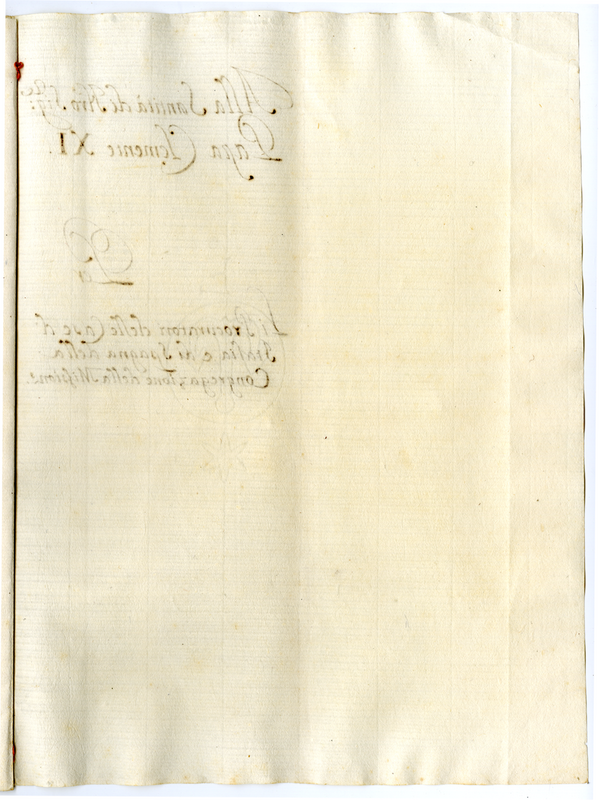 Alla Santità di Nro Sigre
Papa Clemente XI.
Per
Li Procuratori delle Case d'
Italia e di Spagna della
Congregazione della Missione.